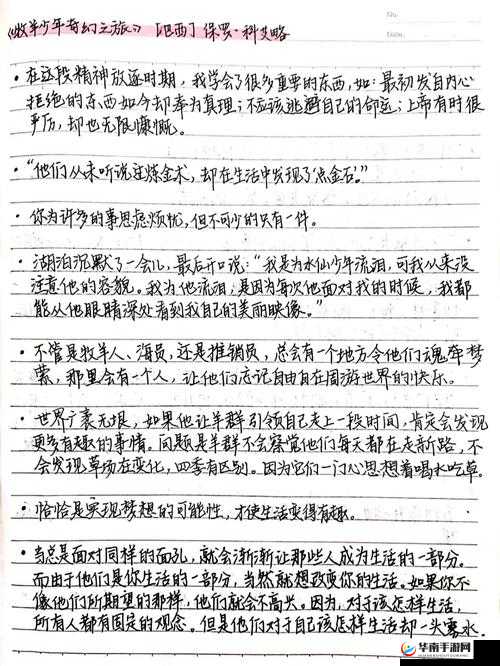 No.
Date
《牧羊少年奇幻之旅》 [巴西] 保罗·科艾略
• 在这段精神放逐时期，我学会了很多重要的东西，如：最初发自内心
拒绝的东西如今却奉为真理；不应该逃避自己的命运；上帝有时很
严厉，却也无限慷慨。
• “他们从未听说过炼金术，却在生活中发现了‘点金石’。”
• 你为许多的事思虑烦忧，但不可少的只有一件。
• 湖泊沉默了一会儿，最后开口说：“我是为水仙少年流泪，可我从来没
注意他的容貌。我为他流泪，是因为每次他面对我的时候，我都
能从他眼睛深处看到我自己的美丽映像。”
• 不管是牧羊人、海员，还是推销员，总会有一个地方令他们魂牵梦
萦，那里会有一个人，让他们忘记自由自在周游世界的快乐。
• 世界广袤无垠，如果他让羊群引领自己走上一段时间，肯定会发现
更多有趣的事情。问题是羊群不会察觉他们每天都在走新路，不
会发现草场在变化，四季有区别。因为它们一门心思想着喝水吃草。
• 恰恰是实现梦想的可能性，才使生活变得有趣。
• 当总是面对同样的面孔，就会渐渐让那些人成为生活的一部分。
而由于他们是你生活的一部分，当然就想改变你的生活。如果你不
像他们所期望的那样，他们就会不高兴。因为，对于该怎样生活，
所有人都有固定的观念。但是他们对于自己该怎样生活却一头雾水。
华南手游网